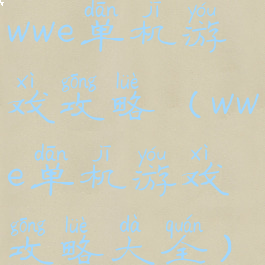 dān jī yóu
wwe单机游
xì gōng lüè
戏攻略(ww
dān jī yóu xì
e单机游戏
gōng lüè dà quán
攻略大全)